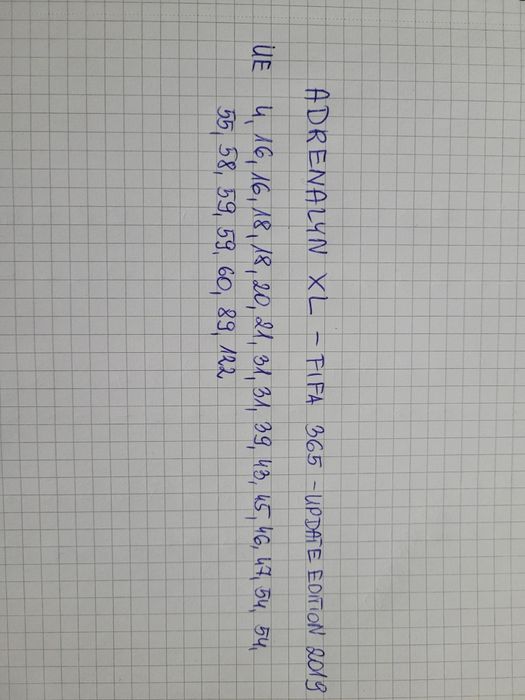 ADRENALYN XL - FIFA 365 - UPDATE EDITION 2019
UE 4, 16, 16, 18, 18, 20, 21, 31, 31, 39, 43, 45, 46, 47, 54, 54,
55, 58, 59, 59, 60, 89, 122